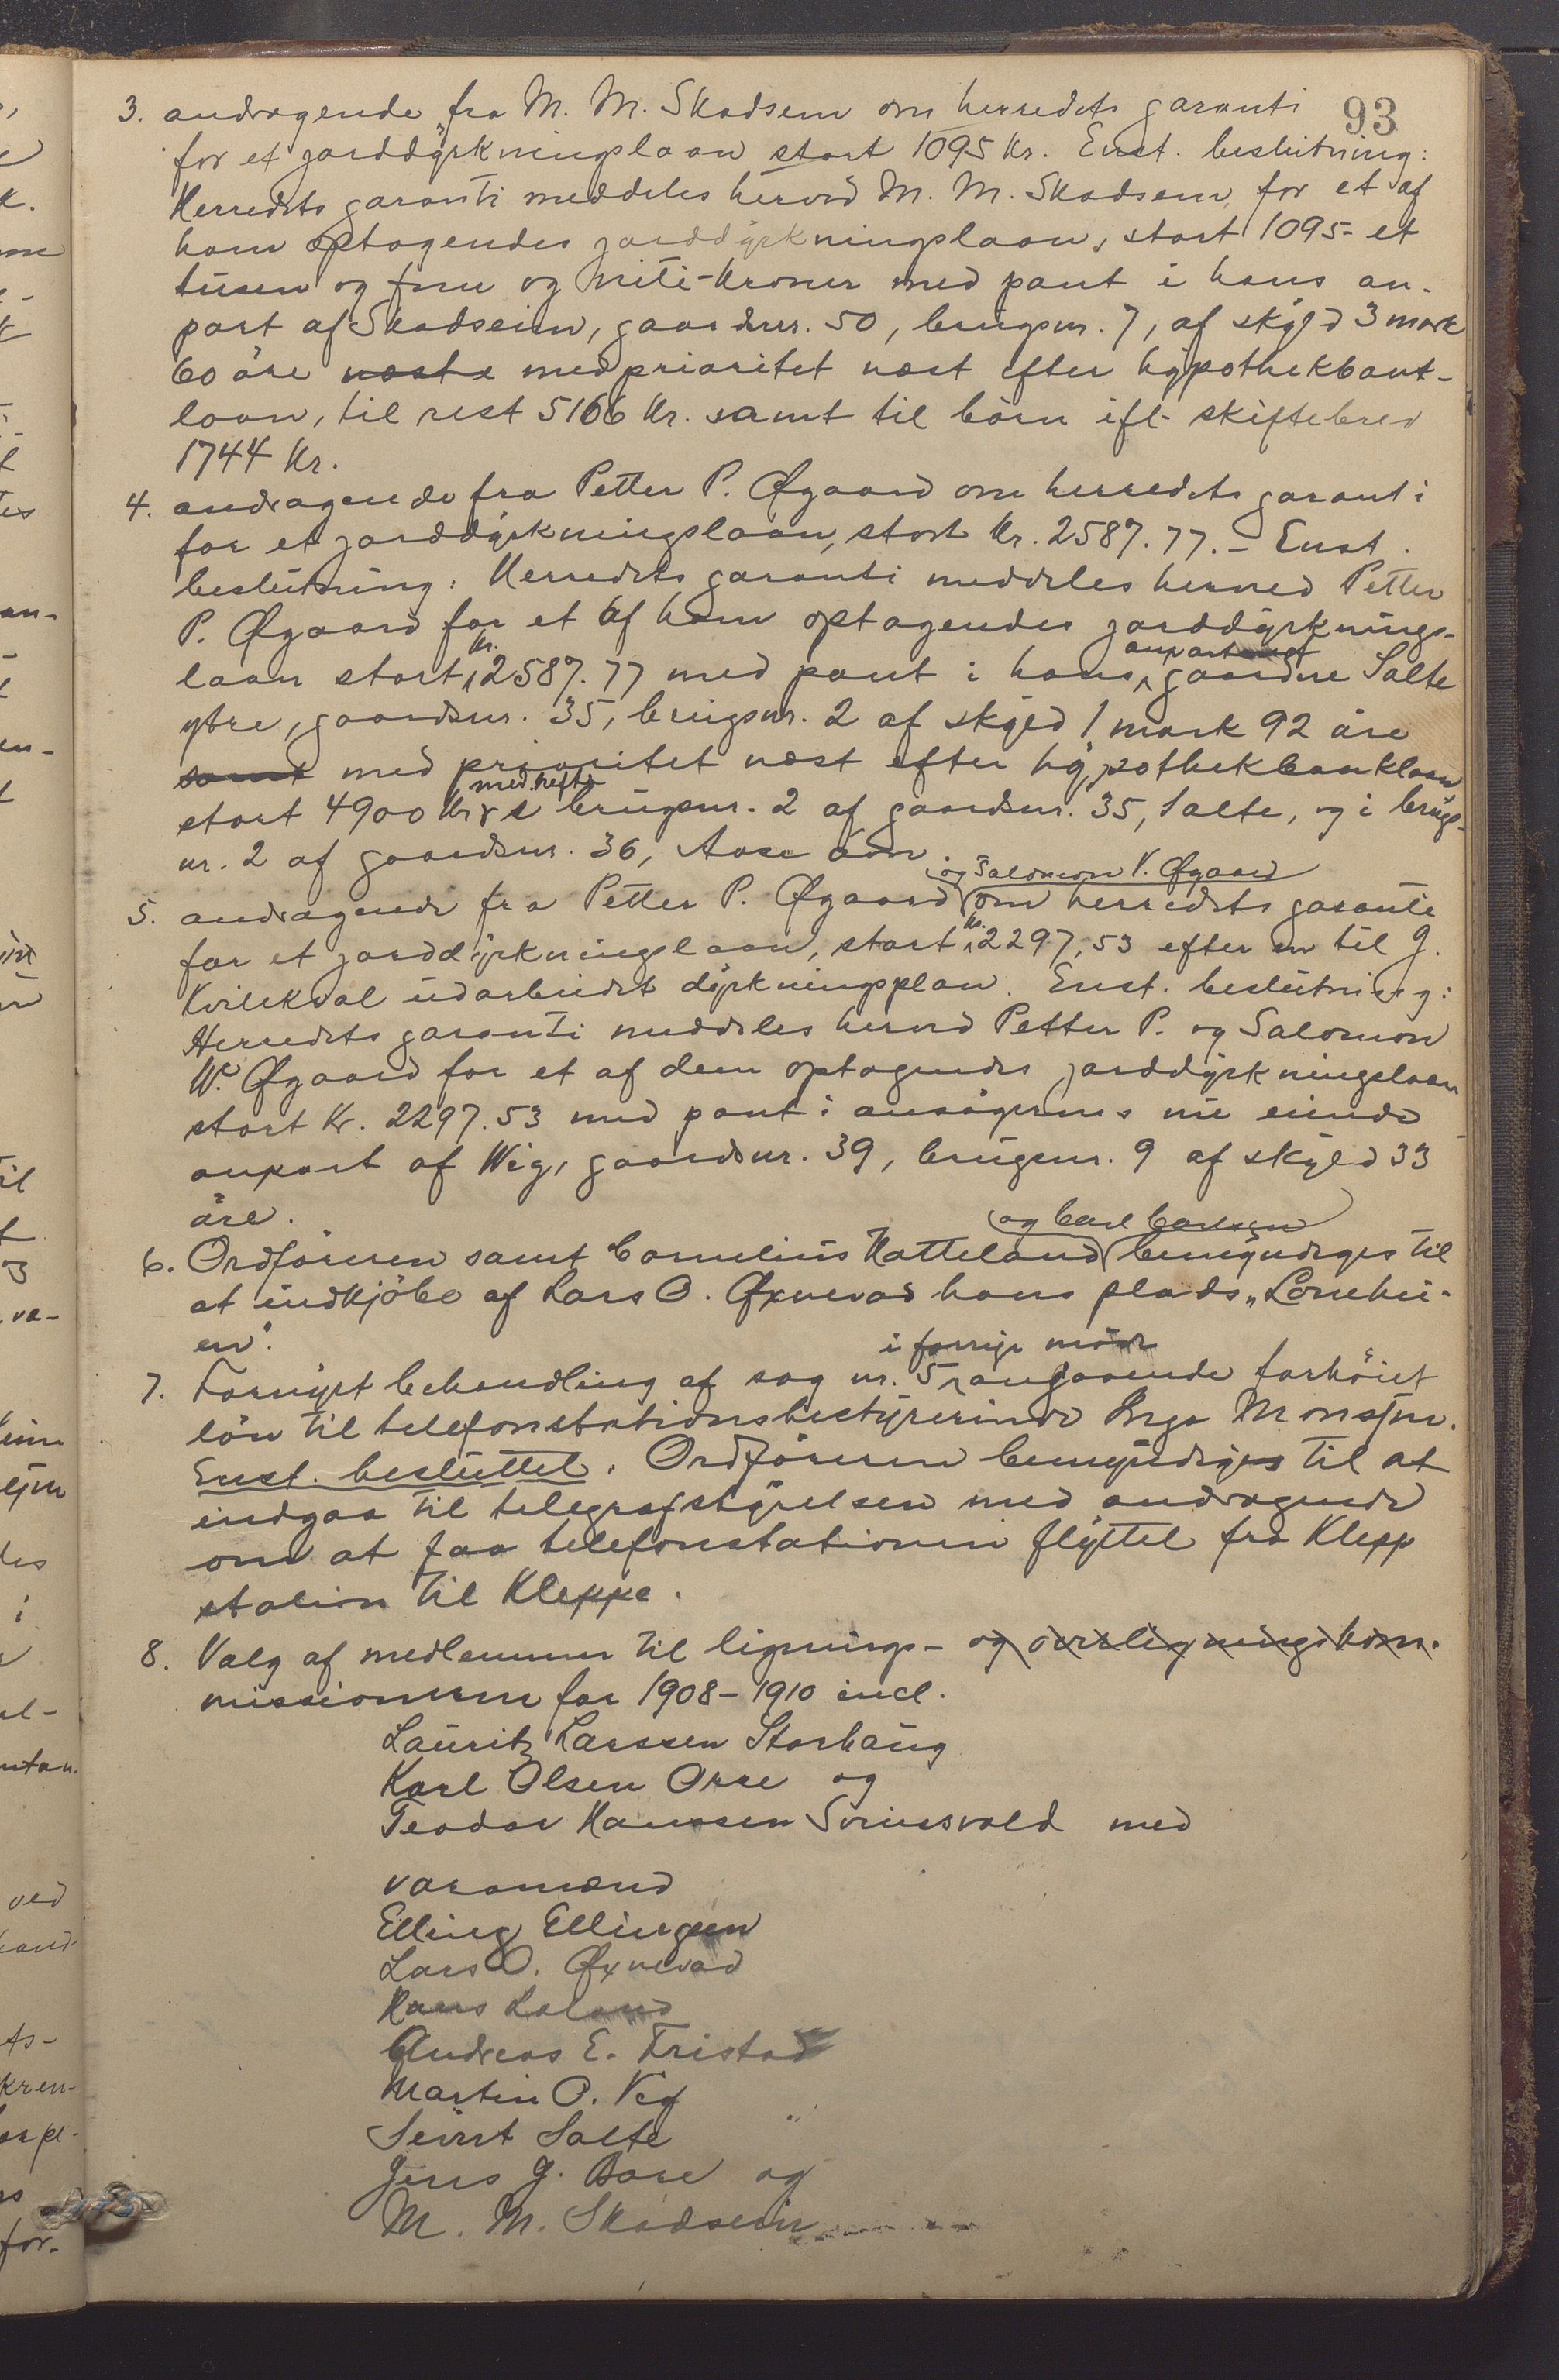 93
3. andragende fra M. M. Skadsem om herredets garanti
for et jorddyrkningslaan stort 1095 kr. Enst. beslutning:
Herredets garanti meddeles herved M. M. Skadsem for et af
ham optagendes jorddyrkningslaan, stort 1095 - et
tusen og fem og niti - kroner med pant i hans an-
part af Skadseim, gaardsnr. 50, brugsnr. 7, af skyld 3 mark
60 öre næste med prioritet næst efter hypothekbank-
laan, til rest 5166 kr. samt til börn ifl. skiftebrev
1744 kr.
4. andragende fra Petter P. Øgaard om herredets garanti
for et jorddyrkningslaan, stort kr. 2587.77. - Enst.
beslutning: Herredets garanti meddeles herved Petter
P. Øgaard for et af ham optagendes jorddyrknings-
laan stort kr. 2587.77 med pant i hans anpart af gaardene Salte
ytre, gaardsnr. 35, brugsnr. 2 af skyld 1 mark 92 öre
samt med prioritet næst efter hypothekbanklaan
stort 4900 kr med hefte i brugsnr. 2 af gaardsnr. 35, Salte, og i brugs-
nr. 2 af gaardsnr. 36,
5. andragende fra Petter P. Øgaard og Salomon V. Øgaard om herredets garanti
for et jorddyrkningslaan, stort kr. 2297,53 efter en til G.
Kvilekval udarbeidet dyrkningsplan. Enst. beslutning:
Herredets garanti meddeles herved Petter P. og Salomon
W. Øgaard for et af dem optagendes jorddyrkningslaan
stort Kr. 2297.53 med pant i ansögernes nu eiende
anpart af Wig, gaardsnr. 39, brugsnr. 9 af skyld 33
öre.
6. Ordföreren samt Cornelius Hatteland og Carl Carlsen bemyndiges til
at indkjöbe af Lars O. Øxnevad hans plads "Lonehei-
en".
7. Fornyet behandling af sag nr. 5 i forrige möde angaaende forhöiet
lön til telefonstationsbestyrerinde Inga Monsen.
Enst. besluttet. Ordföreren bemyndiges til at
indgaa til telegrafstyrelsen med andragende
om at faa telefonstationen flyttet fra Klepp
station til Kleppe.
8. Valg af medlemmer til lignings- og overligningskom-
missionerne for 1908-1910 incl.
Lauritz Larssen Storhaug
Karl Olsen Orre og
Teodor Hanssen Sveinsvold med
varamænd
Elling Ellingsen
Lars O. Øxnevad
Hans Laland
Andreas E. Tristad
Martin O. Vig
Sivert Salte
Jens G. Bore og
M. M. Skadseim